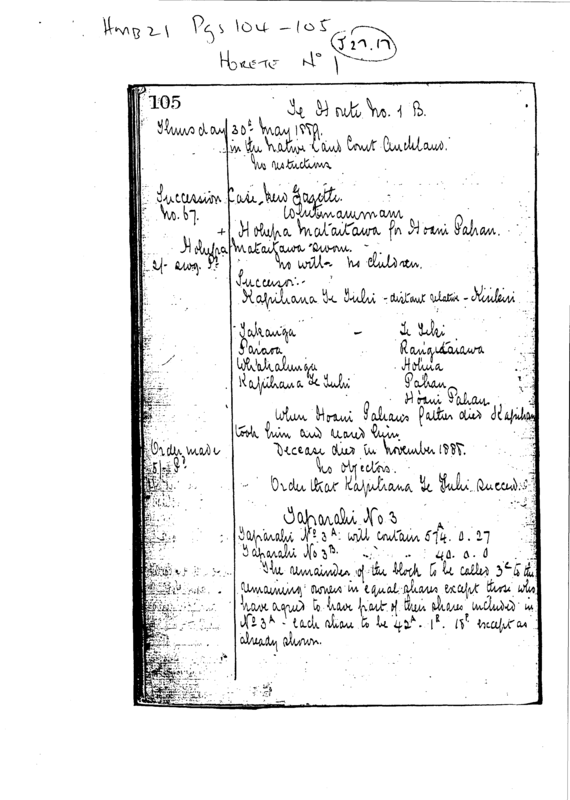 HMB 21 Pgs 104 - 105
J27.17
HORETE No 1
105
Te Horete No. 1 B.
Thursday 30th May 1889.
in the Native Land Court Auckland.
no restrictions
Succession Case, New Gazette.
No. 67.
+ Hohepa Mataitawa for Hoani Pahau.
Hohepa Mataitawa sworn.
2/- swg. Pd no will - no children.
Successor:-
Kapihana Te Tuhi - distant relative -
Takanga - Te Tiki
Paraoa Rangitaiawa
Whakalunga Hohua
Kapihana Te Tuhi Pahau
Hoani Pahau
When Hoani Pahau's father died Kapihana
took him and reared him.
Order made Decease died in November 1885.
5/- Pd no objectors.
Order that Kapihana Te Tuhi succeed.
Taparahi No 3
Taparahi No 3A will contain 574. 0. 27
Taparahi No 3B " " 40. 0. 0
The remainder of the block to be called 3C to the
remaining owners in equal shares except those who
have agreed to have part of their shares included in
No 3A - each share to be 42A. 1R. 18P except as
already shown.